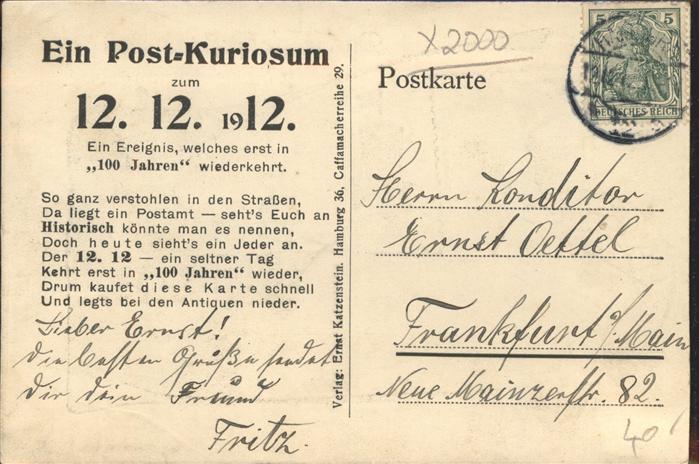 Ein Post-Kuriosum
zum
12. 12. 1912.
Ein Ereignis, welches erst in
„100 Jahren" wiederkehrt.
So ganz verstohlen in den Straßen,
Da liegt ein Postamt — seht's Euch an
Historisch könnte man es nennen,
Doch heute sieht's ein Jeder an.
Der 12. 12 — ein seltner Tag
Kehrt erst in „100 Jahren" wieder,
Drum kaufet diese Karte schnell
Und legts bei den Antiquen nieder.
Lieber Ernst!
die besten Grüße sendet
Dir dein Freund
Fritz.
Verlag: Ernst Katzenstein. Hamburg 36, Caffamacherreihe 29.
x2000
Postkarte
5 5
DEUTSCHES REICH
12
Herrn Konditor
Ernst Oettel
Frankfurt a/Main
Neue Mainzerstr. 82.
40